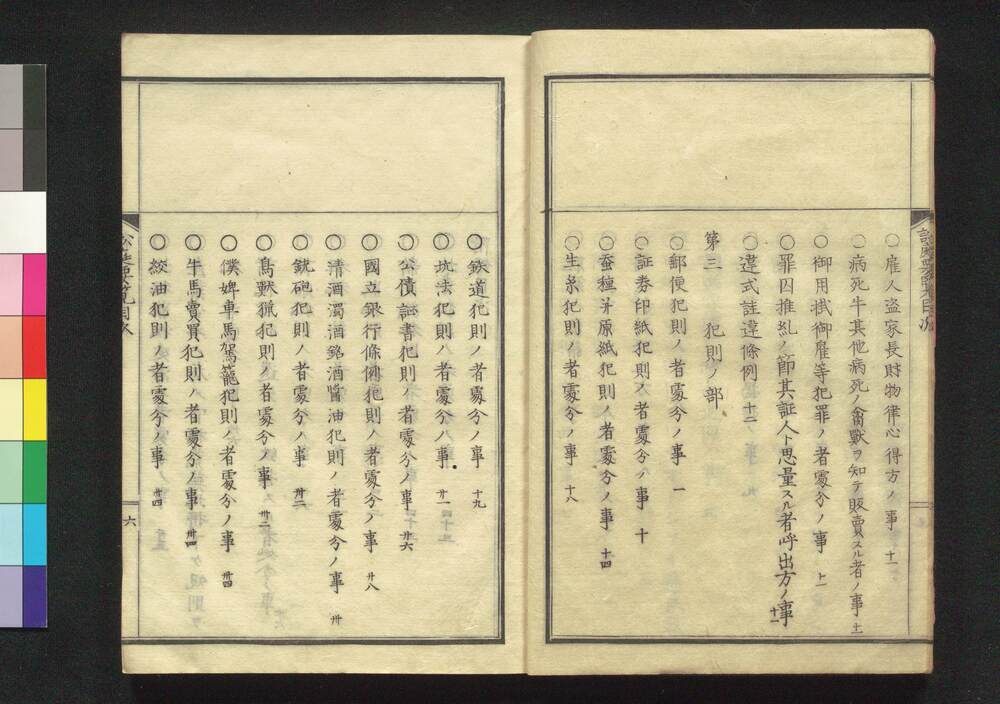 〇雇人盗家長財物律心得方ノ事 十一
〇病死牛其他病死ノ禽獣ヲ知テ販賣スル者ノ事 十一
〇御用掛御雇等犯罪ノ者處分ノ事 十一
〇罪囚推糺ノ節其証人ト思量スル者呼出方ノ事 十一
〇違式詿違條例 十二
第三 犯則ノ部
〇郵便犯則ノ者處分ノ事 一
〇証券印紙犯則ノ者處分ノ事 十
〇蚕種并原紙犯則ノ者處分ノ事 十四
〇生糸犯則ノ者處分ノ事 十八
〇鉄道犯則ノ者處分ノ事 十九
〇坑法犯則ノ者處分ノ事 廿一
〇公債証書犯則ノ者處分ノ事 廿六
〇國立銀行條例犯則ノ者處分ノ事 廿八
〇清酒濁酒銘酒醤油犯則ノ者處分ノ事 卅
〇銃砲犯則ノ者處分ノ事 卅二
〇鳥獣猟犯則ノ者處分ノ事 卅二
〇僕婢車馬駕籠犯則ノ者處分ノ事 卅四
〇牛馬賣買犯則ノ者處分ノ事 卅四
〇絞油犯則ノ者處分ノ事 卅四
六